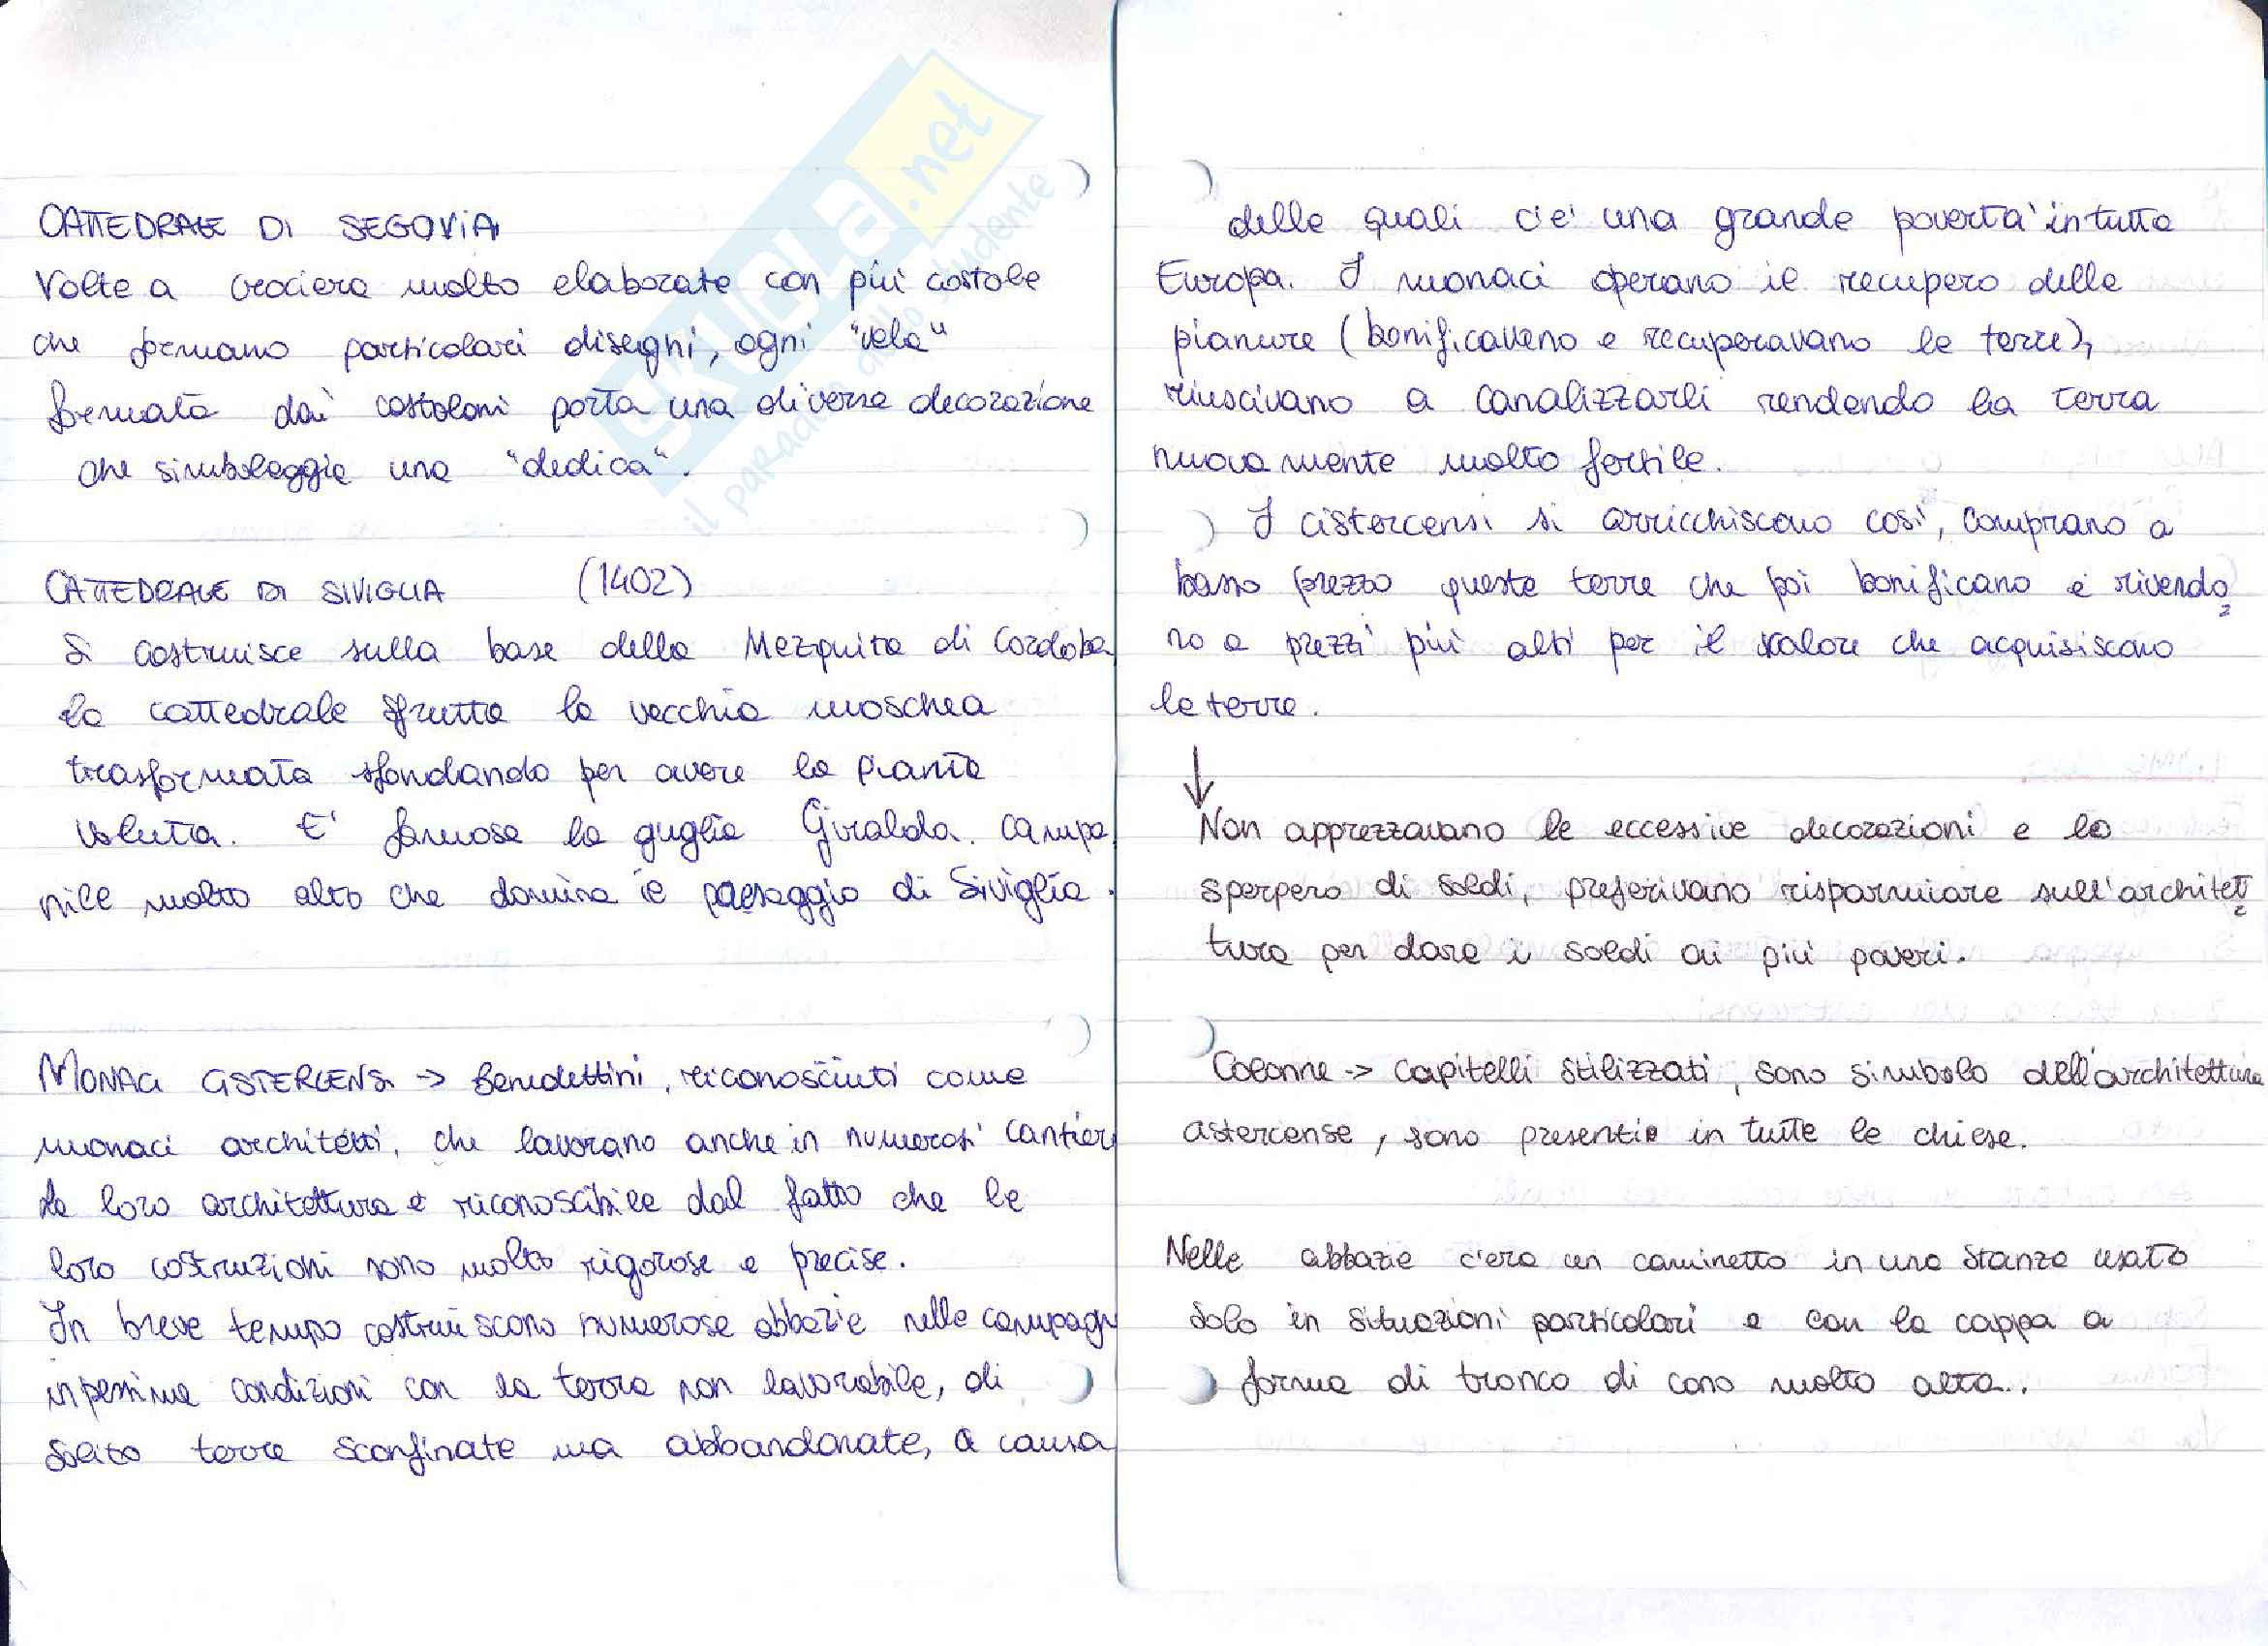 CATTEDRALE DI SEGOVIA
Volte a crociera molto elaborate con più costole
che formano particolari disegni, ogni "vela"
formata dai costoloni porta una diversa decorazione
che simboleggia una "dedica".
CATTEDRALE DI SIVIGLIA (1402)
Si costruisce sulla base della Mezquita di Cordoba
la cattedrale sfrutta la vecchia moschea
trasformata sfondando per avere la pianta
voluta. E' famosa la guglia Giralda. Campa
nile molto alto che domina il paesaggio di Siviglia.
MONACI CISTERCENSI -> Benedettini, riconosciuti come
monaci architetti, che lavorano anche in numerosi cantieri
La loro architettura è riconoscibile dal fatto che le
loro costruzioni sono molto rigorose e precise.
In breve tempo costruiscono numerose abbazie nelle campagn
in pessime condizioni con la terra non lavorabile, di
solito terre sconfinate ma abbandonate, a causa
delle quali c'è una grande povertà in tutta
Europa. I monaci operano il recupero delle
pianure (bonificavano e recuperavano le terre),
riuscivano a canalizzarli rendendo la terra
nuovamente molto fertile.
I cistercensi si arricchiscono così, comprano a
basso prezzo queste terre che poi bonificano e rivendo
no a prezzi più alti per il valore che acquisiscono
le terre.
↓
Non apprezzavano le eccessive decorazioni e lo
sperpero di soldi, preferivano risparmiare sull'architet
tura per dare i soldi ai più poveri.
Colonne -> Capitelli stilizzati, sono simbolo dell'architettura
cistercense, sono presenti in tutte le chiese.
Nelle abbazie c'era un caminetto in una stanza usato
solo in situazioni particolari e con la cappa a
forma di tronco di cono molto alta..
SKUOLA.net
il paradiso dello studente